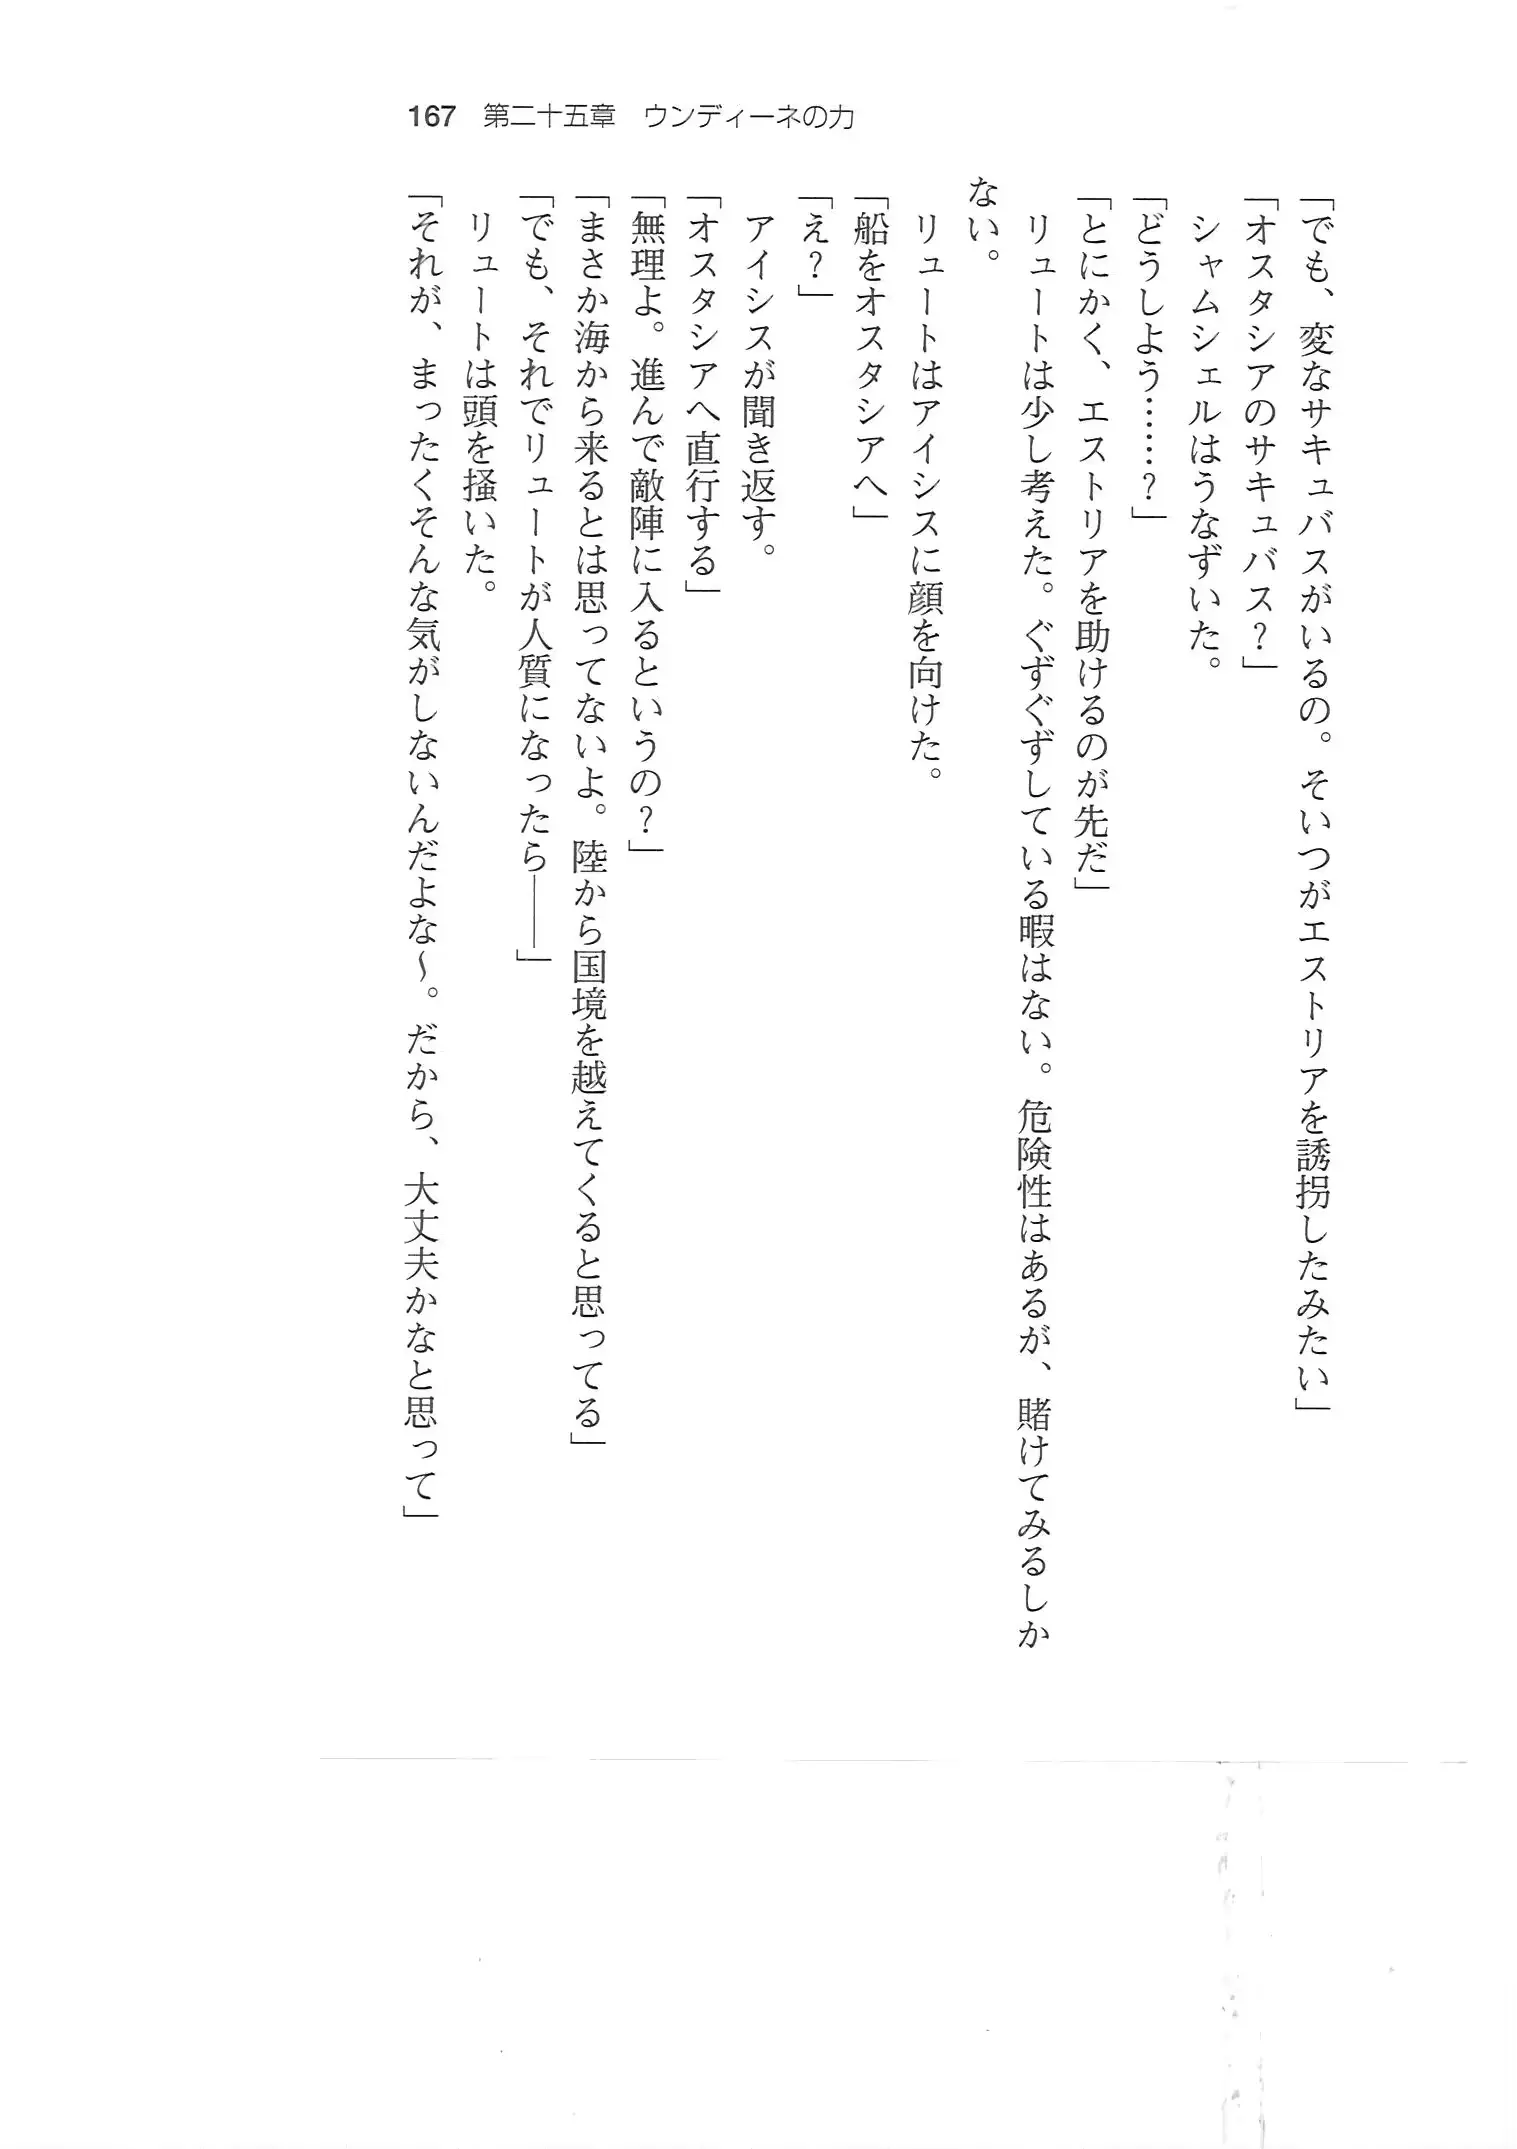 167　第二十五章　ウンディーネの力
「でも、変なサキュバスがいるの。そいつがエストリアを誘拐したみたい」
「オスタシアのサキュバス？」
　シャムシェルはうなずいた。
「どうしよう……？」
「とにかく、エストリアを助けるのが先だ」
　リュートは少し考えた。ぐずぐずしている暇はない。危険性はあるが、賭けてみるしか
ない。
　リュートはアイシスに顔を向けた。
「船をオスタシアへ」
「え？」
　アイシスが聞き返す。
「オスタシアへ直行する」
「無理よ。進んで敵陣に入るというの？」
「まさか海から来るとは思ってないよ。陸から国境を越えてくると思ってる」
「でも、それでリュートが人質になったら――」
　リュートは頭を掻いた。
「それが、まったくそんな気がしないんだよな～。だから、大丈夫かなと思って」